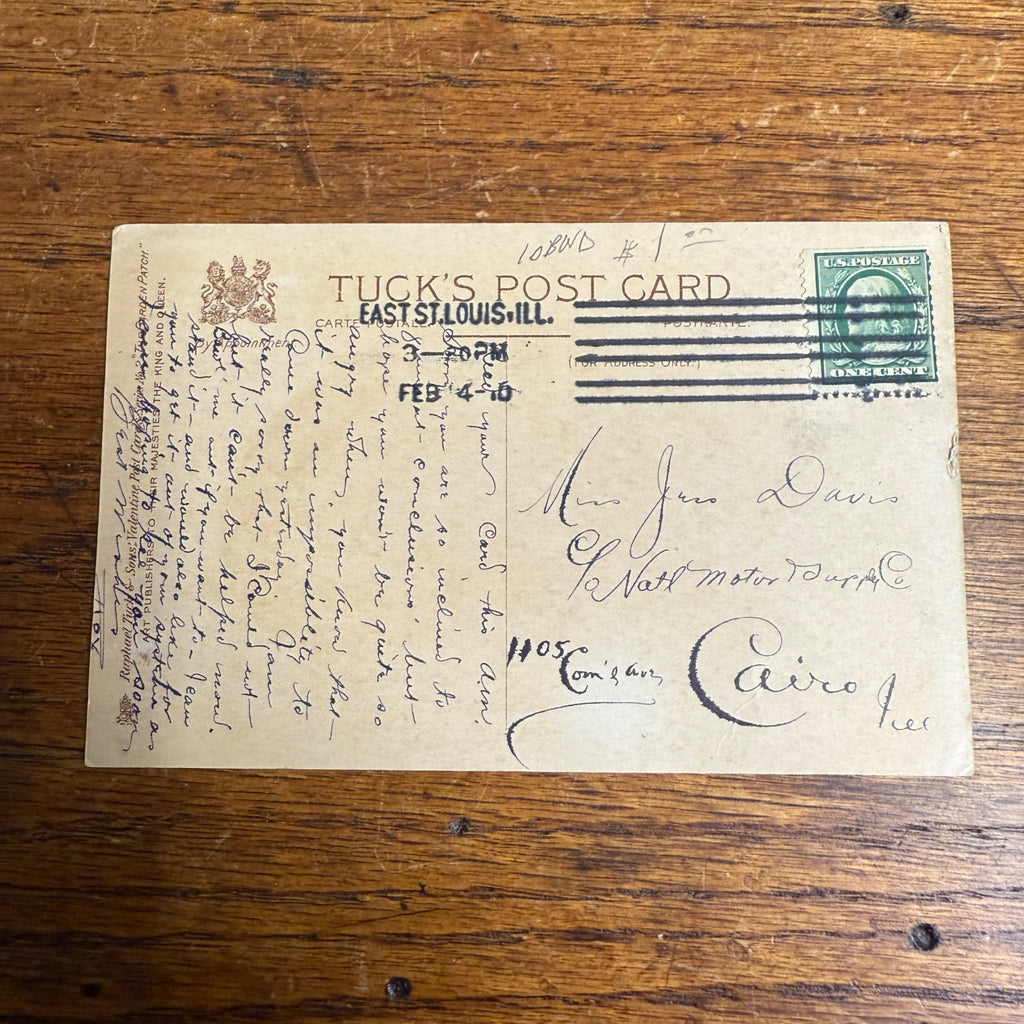 10BWD $1.00
TUCK'S POST CARD
CARTE POSTALE. POSTKARTE.
(FOR ADDRESS ONLY.)
By Appointment
EAST ST. LOUIS, ILL.
3—20PM
FEB 4-10
U.S. POSTAGE
ONE CENT
Miss Jess Davis
C/o Natl Motor Supply Co
1105 Com'l Ave,
Cairo Ill
your Card this am.
Sorry you are so inclined to
conclusions, but
hope you won't be quite so
angry when, you know that
it was an impossibility to
Come down yesterday. I am
really sorry that I Could not
but it can't be helped now.
me out if you want to- I can
stand it- and would also like for
you to get it out of your system as
soon
Best Wishes
Raphael Tuck & Sons' Valentine Post Card Series No. 2, "The Garden Patch."
ART PUBLISHERS TO THEIR MAJESTIES THE KING AND QUEEN.